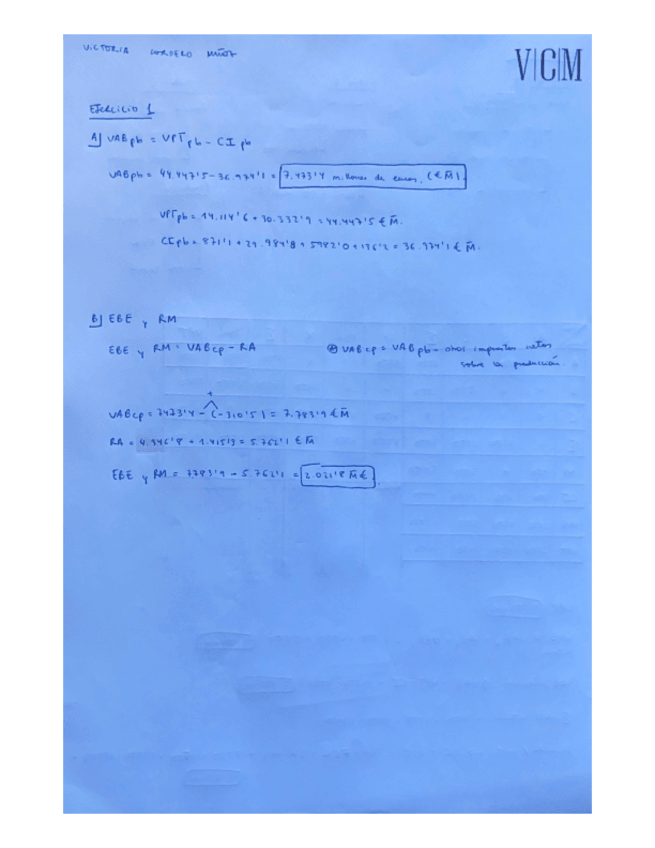 VICTORIA CORDERO MUÑOZ
V|C|M
EJERCICIO 1
A] VABpb = VPTpb - CIpb
VABpb = 44.447'5 - 36.974'1 = 7.473'4 millones de euros. (€ M).
VPTpb = 14.114'6 + 30.332'9 = 44.447'5 € M.
CIpb = 871'1 + 29.984'8 + 5982'0 + 136'2 = 36.974'1 € M.
B] EBE y RM
EBE y RM = VABcp - RA
VABcp = VABpb - otros impuestos netos
sobre la producción
+
VABcp = 7473'4 - (-310'5) = 7.783'9 € M
RA = 4.346'8 + 1.415'3 = 5.762'1 € M
EBE y RM = 7783'9 - 5.762'1 = 2.021'8 M €